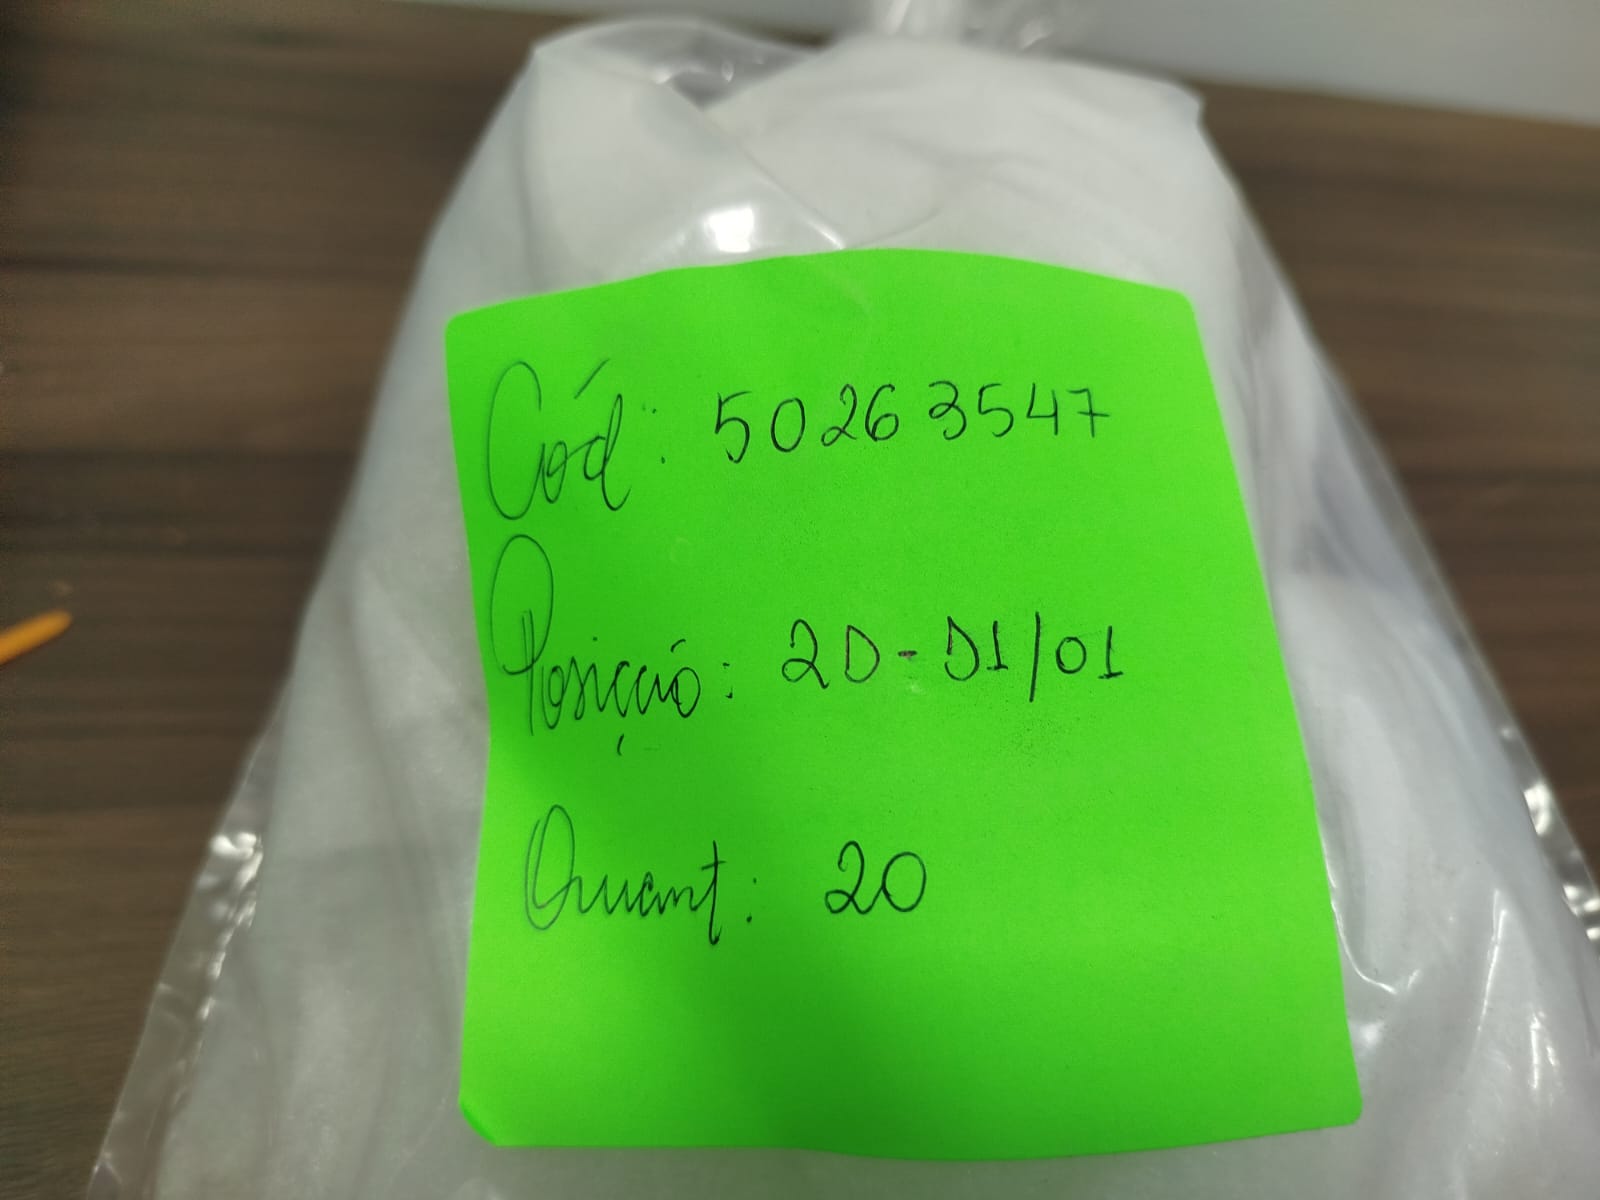 Cód: 50263547
Posição: 2D-D1/01
Quant: 20